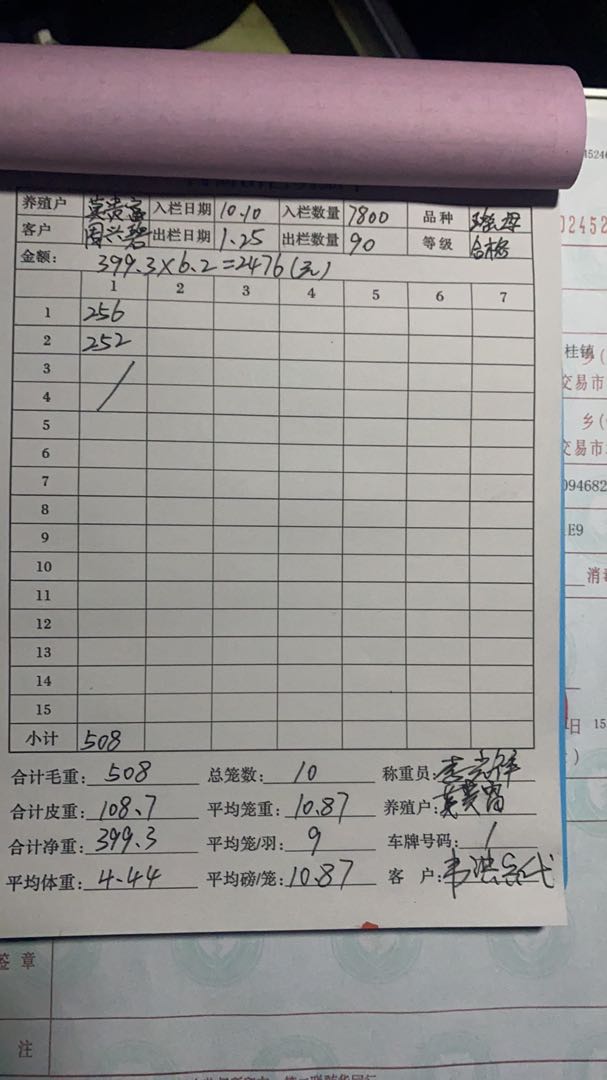 养殖户 莫贵富 入栏日期 10.10 入栏数量 7800 品种
客户 周兴碧 出栏日期 1.25 出栏数量 90 等级 合格
金额: 399.3×6.2=2476(元)
1 2 3 4 5 6 7
1 256
2 252
3
4
5
6
7
8
9
10
11
12
13
14
15
小计 508
合计毛重: 508 总笼数: 10 称重员:
合计皮重: 108.7 平均笼重: 10.87 养殖户: 莫贵富
合计净重: 399.3 平均笼/羽: 9 车牌号码: /
平均体重: 4.44 平均磅/笼: 10.87 客 户:
桂镇
乡(
交易市
乡(
交易市
094682
1E9
消毒
日 15
签 章
注